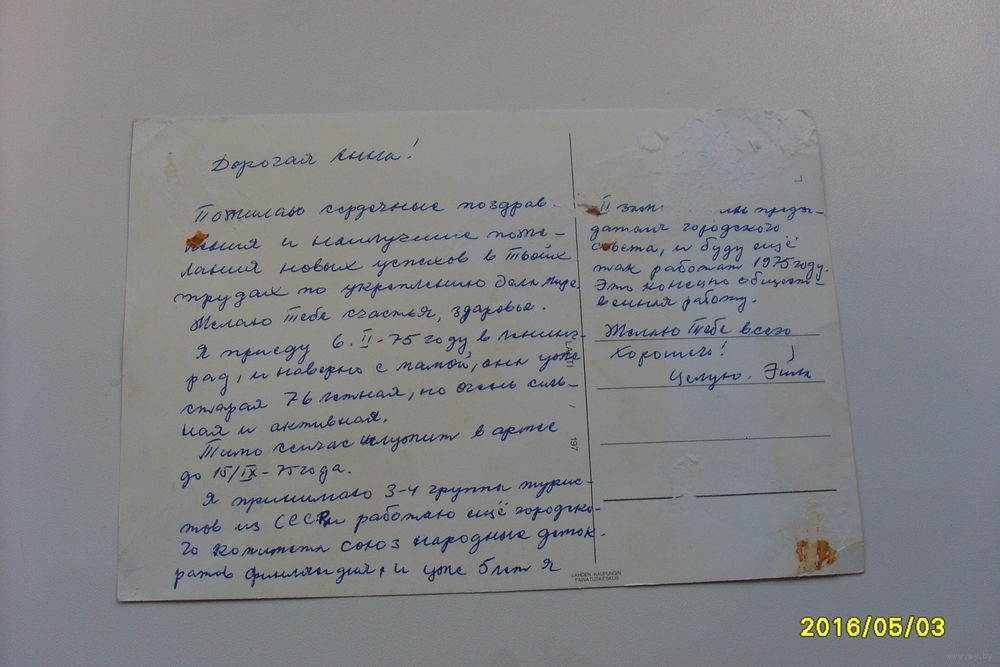 Дорогая Анна!
Посылаю сердечные поздрав-
ления и наилучшие поже-
лания новых успехов в Твоих
трудах по укреплению дела мира.
Желаю Тебе счастья, здоровье.
Я приеду 6. II-75 году в Ленинг-
рад, и наверно с мамой, она уже
старая 76 летная, но очень силь-
ная и активная.
Тимо сейчас служит в армее
до 15/IX-75 года.
Я принимаю 3-4 группы турис-
тов из СССР и работаю ещё городско-
го комитета союз народные демок-
ратов Финляндия, и уже был я
II предсе-
дателя городского
совета, и буду ещё
так работат 1975 году.
Это конечно обществ-
венная работу.
Желаю Тебе всего
хорошего!
Целую.
LAHTI / 197
LAHDEN KAUPUNGIN
PAINATUSKESKUS
2016/05/03